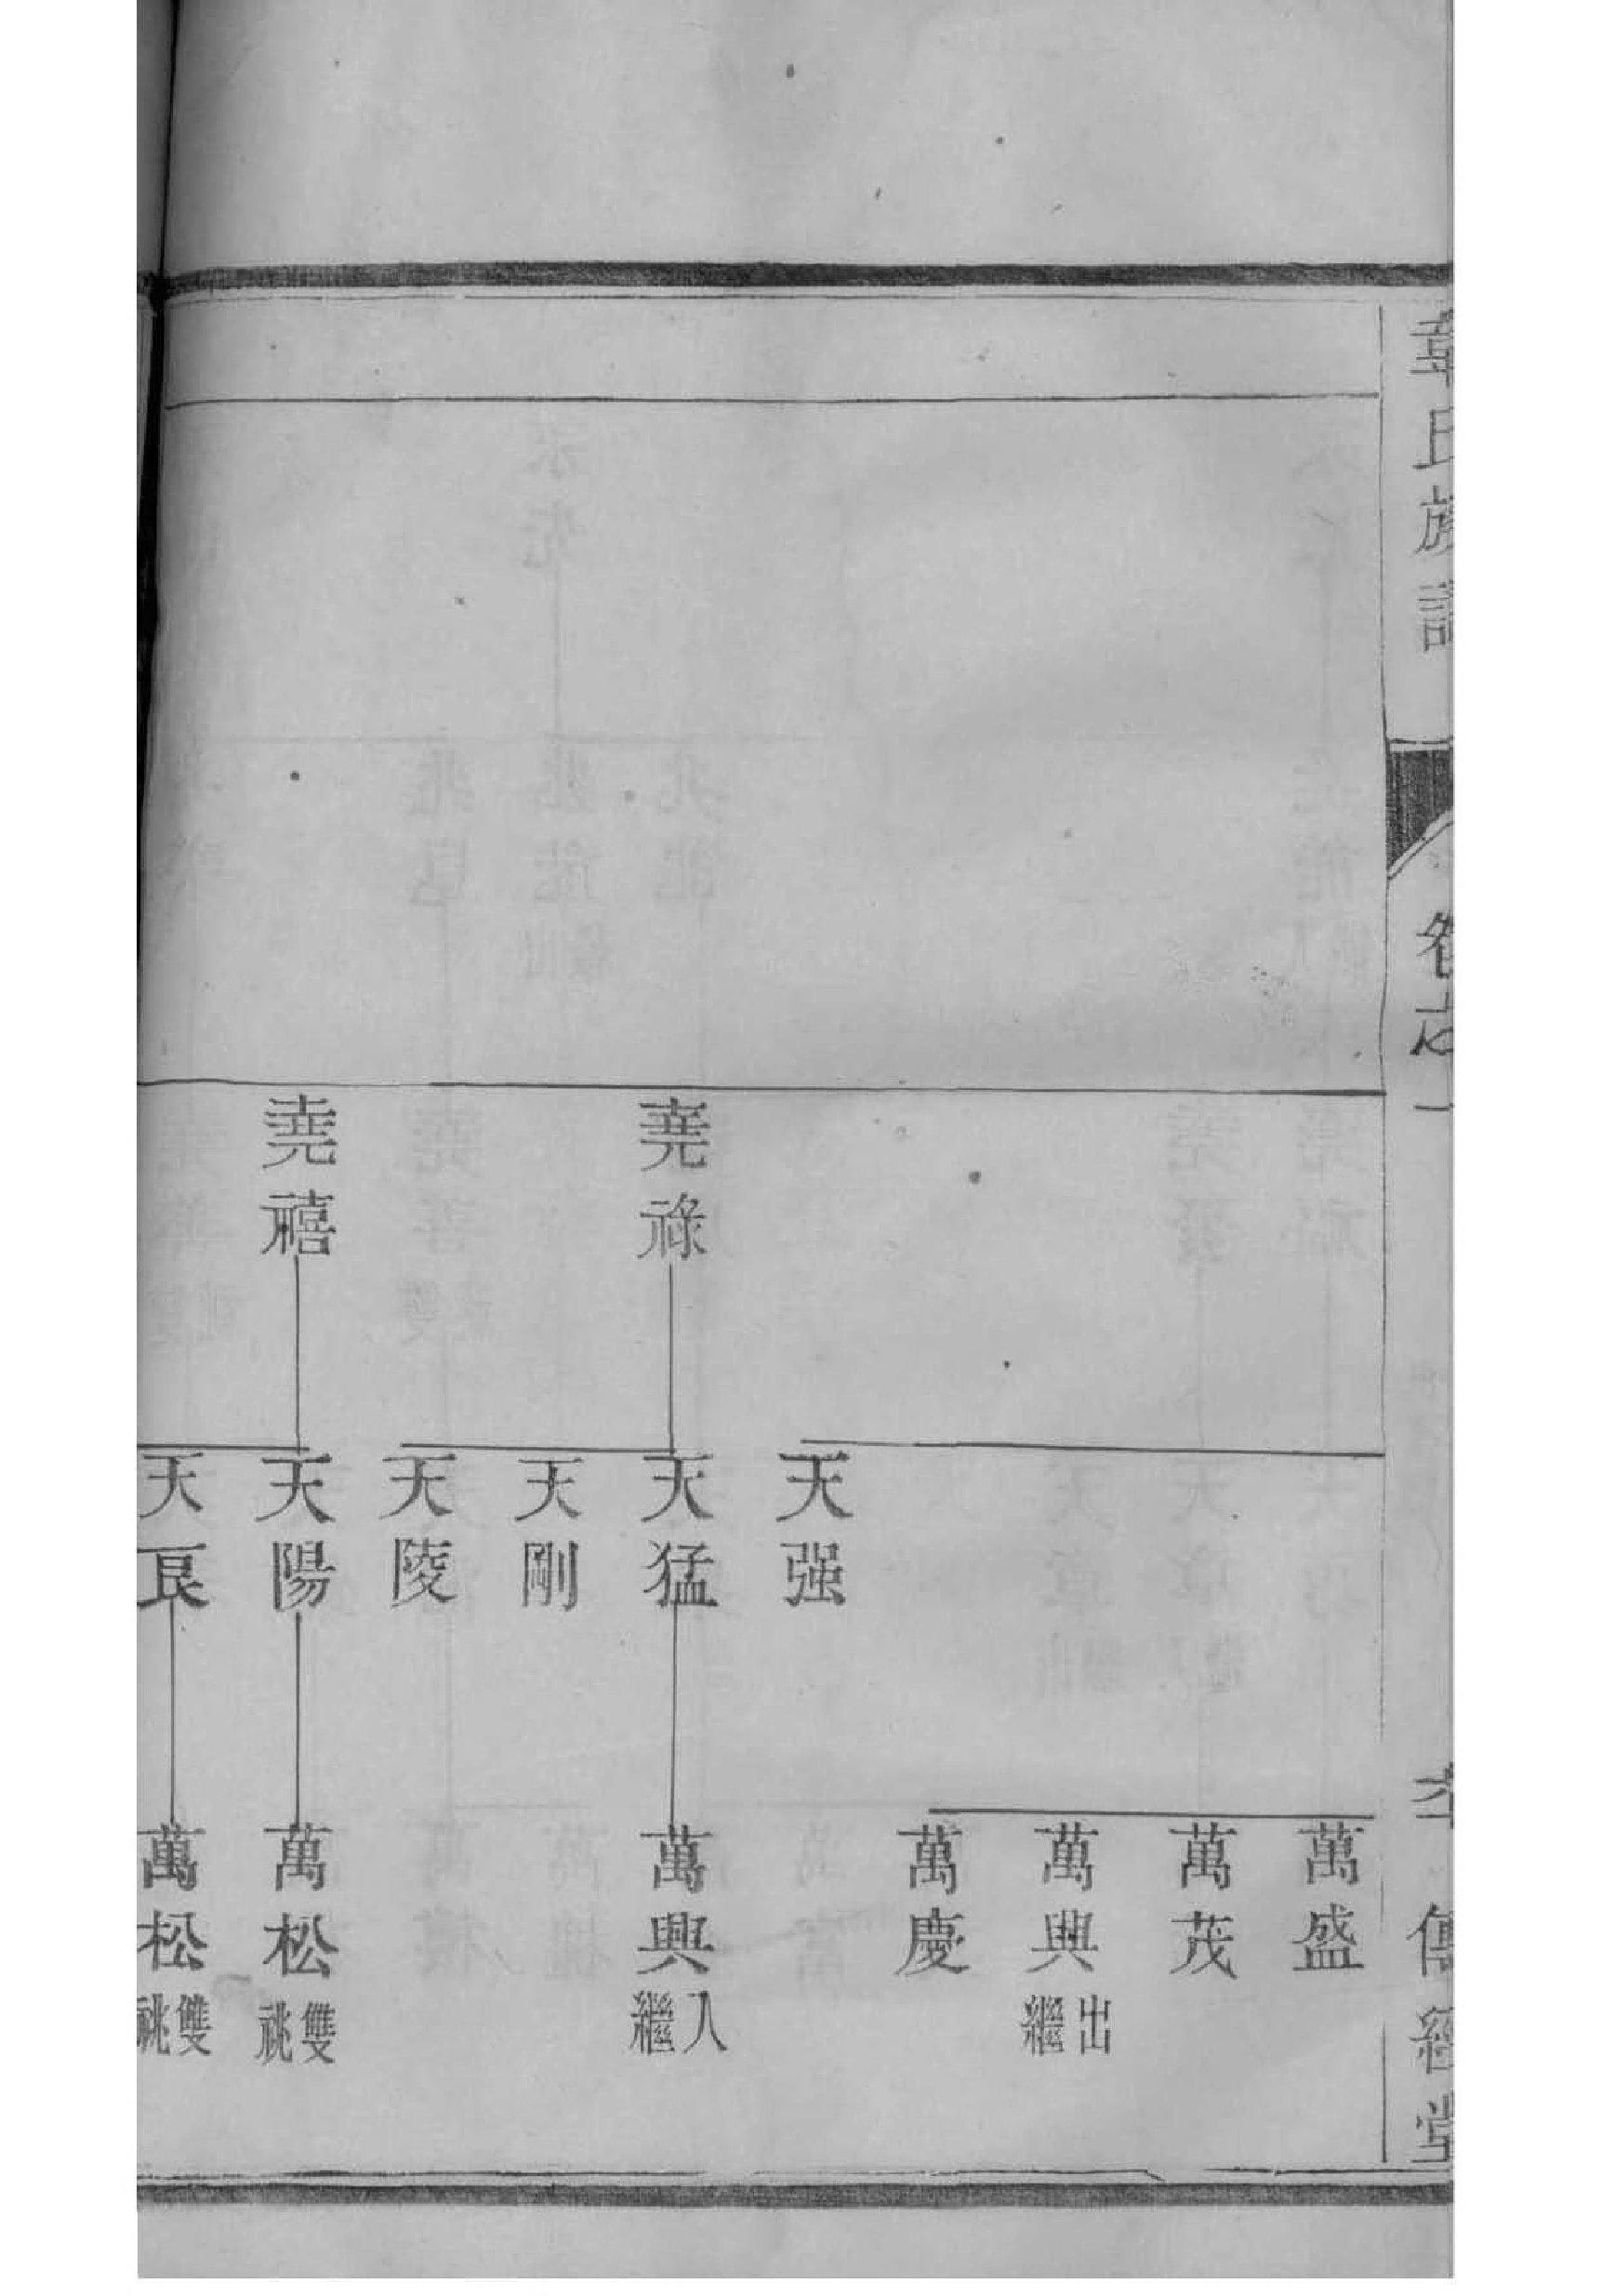 章氏族譜
卷之一
傳經堂
萬盛
萬茂
萬興出繼
萬慶
天强
堯祿
天猛
萬興入繼
天剛
天陵
堯禧
天陽
萬松雙祧
天良
萬松雙祧